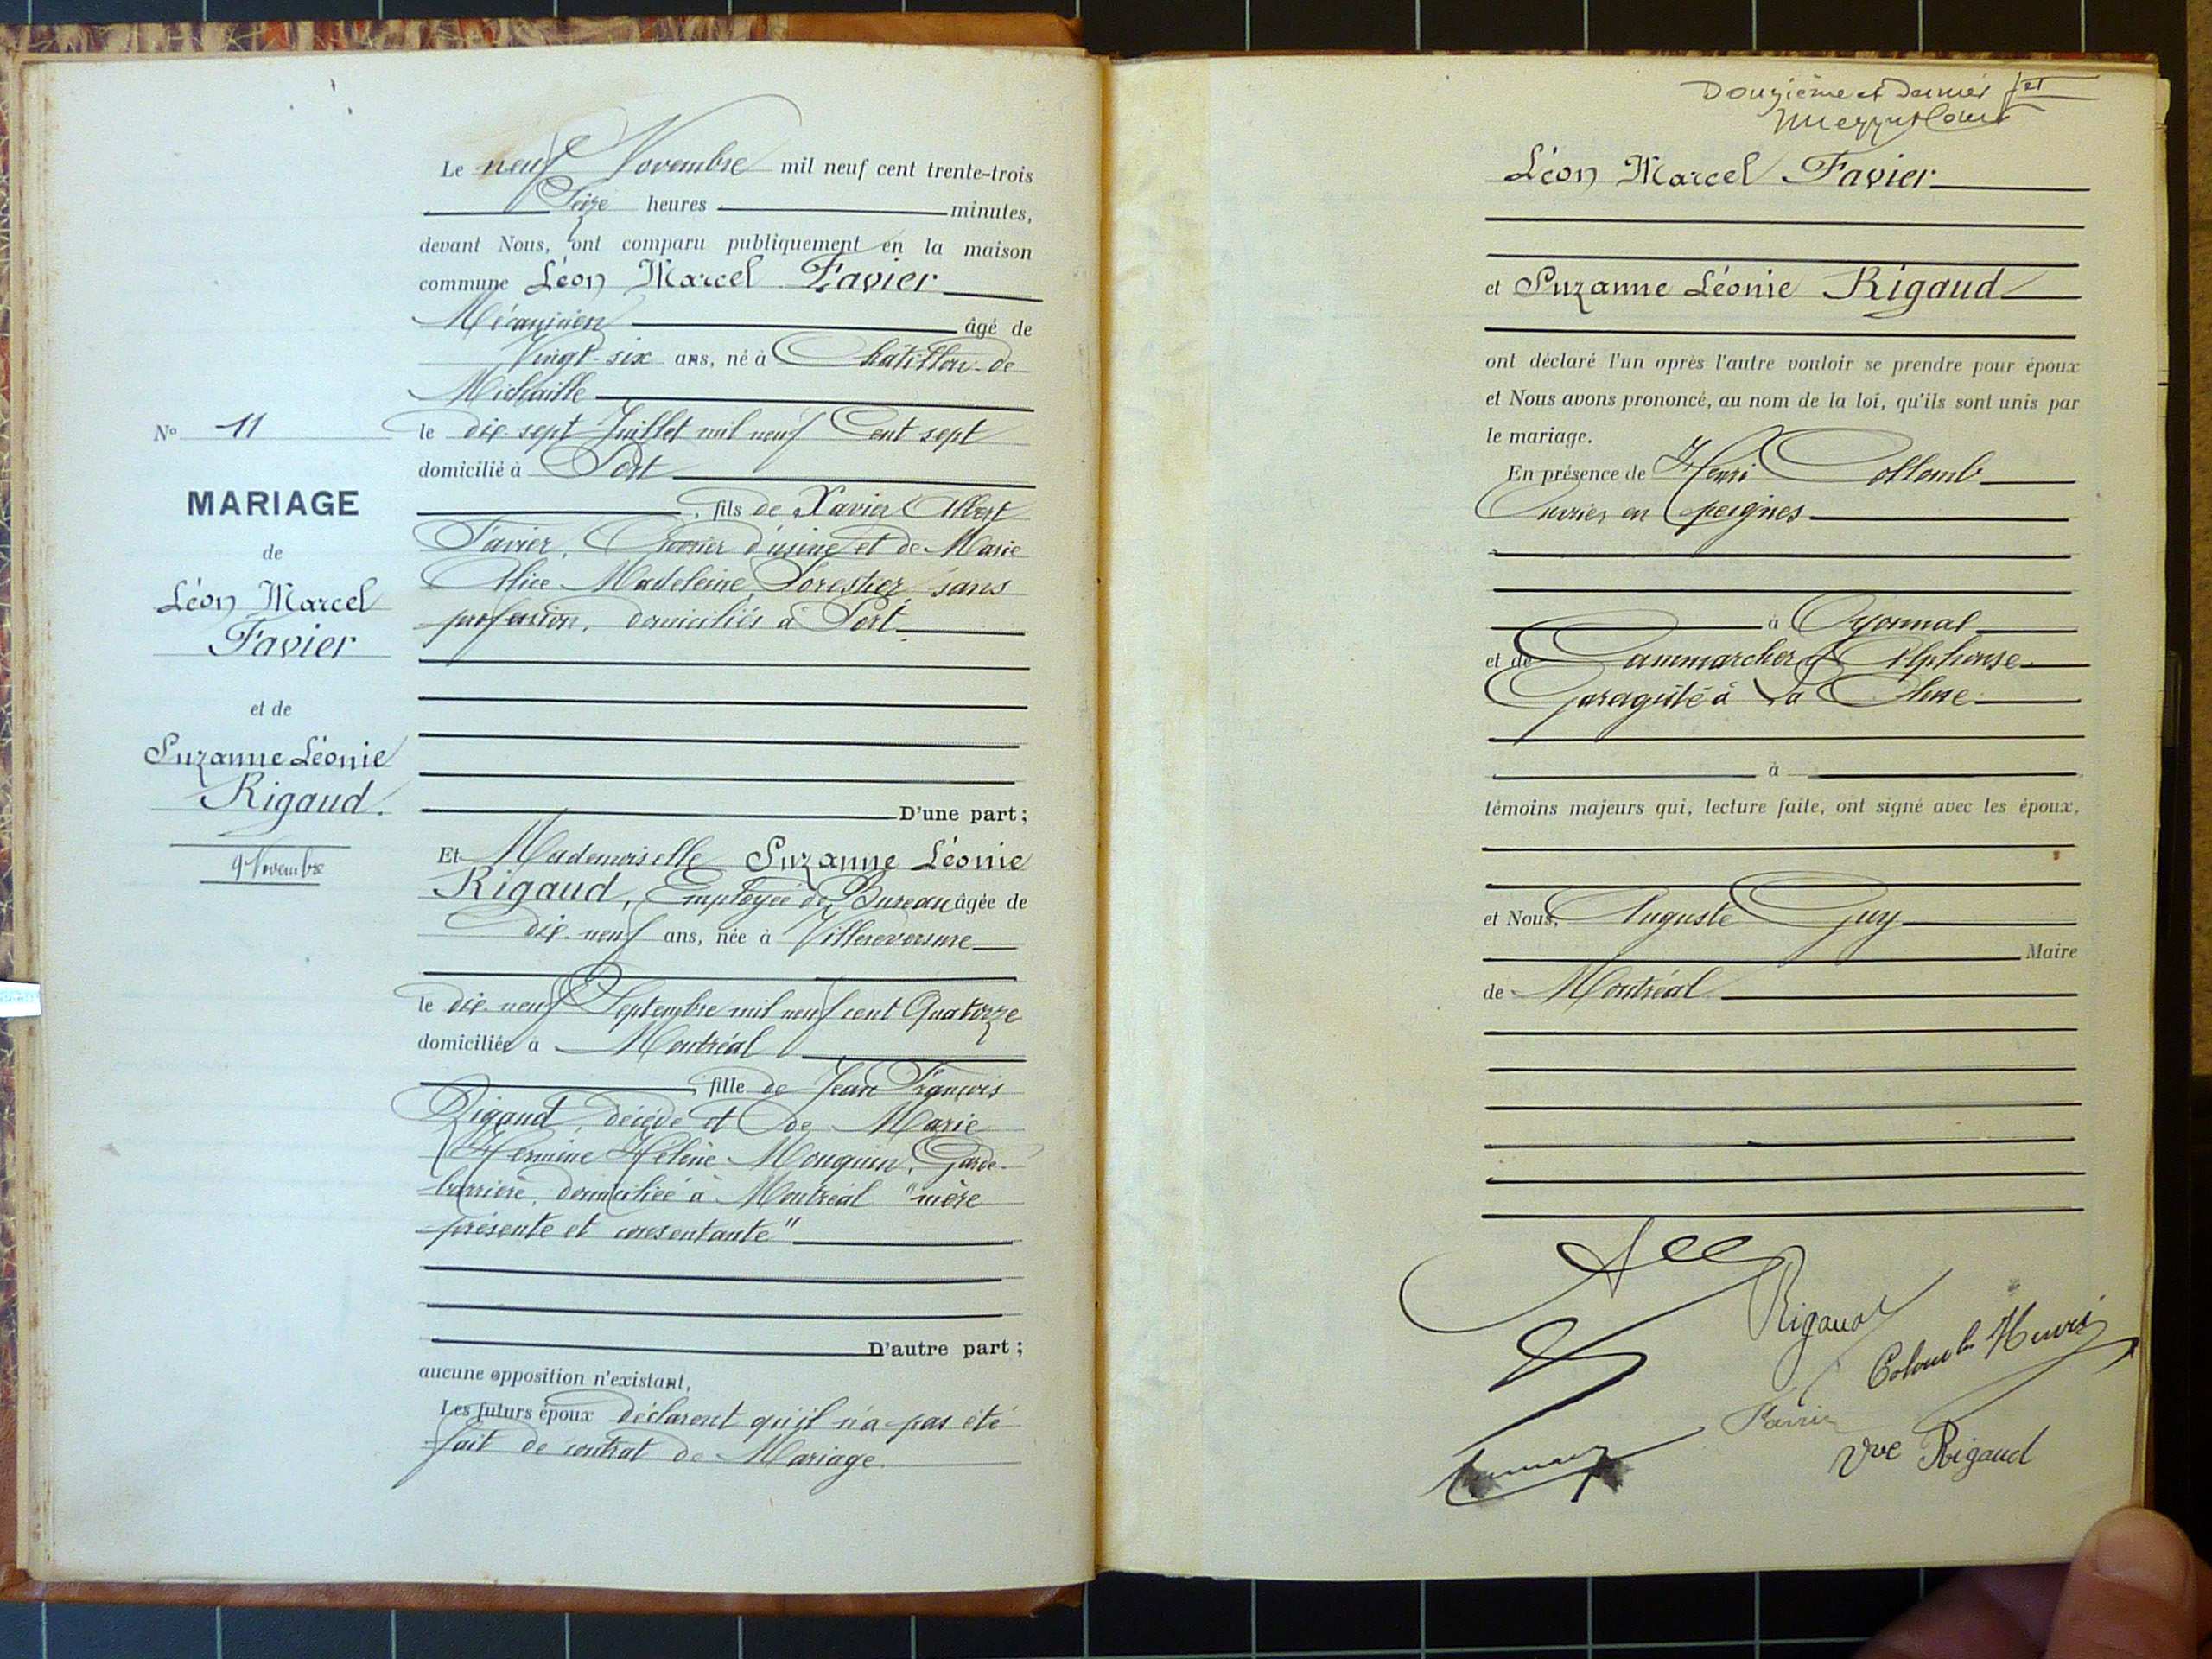 Le neuf Novembre mil neuf cent trente-trois
Seize heures minutes,
devant Nous, ont comparu publiquement en la maison
commune Léon Marcel Favier
Mécanicien âgé de
Vingt-six ans, né à Châtillon-de-
Michaille
le dix-sept Juillet mil neuf Cent sept
domicilié à Port
, fils de Xavier Albert
Favier, Ouvrier d'usine et de Marie
Alice Madeleine Forestier sans
profession, domiciliés à Port.
D'une part;
Nº 11
MARIAGE
de
Léon Marcel
Favier
et de
Suzanne Léonie
Rigaud.
9 Novembre
Et Mademoiselle Suzanne Léonie
Rigaud, Employée de Bureau âgée de
dix-neuf ans, née à Villereversure
le dix-neuf Septembre mil neuf cent Quatorze
domiciliée à Montréal
, fille de Jean François
Rigaud, décédé et de Marie
Hermine Hélène Mouquin, Garde-
barrière, domiciliée à Montréal "mère
présente et consentante"
D'autre part;
aucune opposition n'existant,
Les futurs époux déclarent qu'il n'a pas été
fait de contrat de Mariage.
Douzième et dernier
Léon Marcel Favier
et Suzanne Léonie Rigaud
ont déclaré l'un après l'autre vouloir se prendre pour époux
et Nous avons prononcé, au nom de la loi, qu'ils sont unis par
le mariage.
En présence de Henri Collomb
Ouvrier en peignes
à Oyonnax
et de Cammarcher Alphonse
Garagiste à La Cluse
à
témoins majeurs qui, lecture faite, ont signé avec les époux,
et Nous, Auguste Guy
Maire
de Montréal
Rigaud
Colomb Henri
Favier
Vve Rigaud